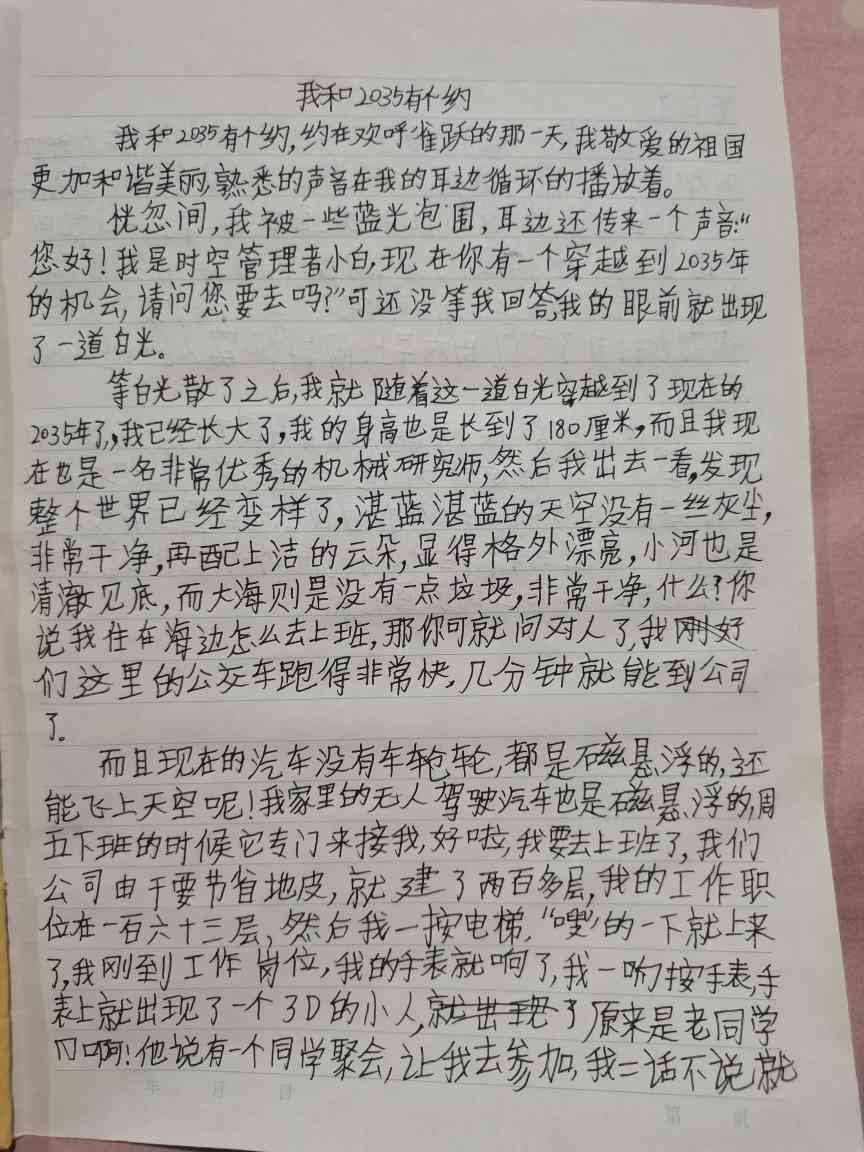 我和2035有个约
我和2035有个约,约在欢呼雀跃的那一天,我敬爱的祖国
更加和谐美丽,熟悉的声音在我的耳边循环的播放着。
恍忽间,我被一些蓝光包围,耳边还传来一个声音:“
您好!我是时空管理者小白,现在你有一个穿越到2035年
的机会,请问您要去吗?”可还没等我回答,我的眼前就出现
了一道白光。
等白光散了之后,我就随着这一道白光穿越到了现在的
2035年了,我已经长大了,我的身高也是长到了180厘米,而且我现
在也是一名非常优秀的机械研究师,然后我出去一看,发现
整个世界已经变样了,湛蓝湛蓝的天空没有一丝灰尘,
非常干净,再配上洁的云朵,显得格外漂亮,小河也是
清澈见底,而大海则是没有一点垃圾,非常干净,什么?你
说我住在海边怎么去上班,那你可就问对人了,我刚好
们这里的公交车跑得非常快,几分钟就能到公司
了。
而且现在的汽车没有车轮,都是磁悬浮的,还
能飞上天空呢!我家里的无人驾驶汽车也是磁悬浮的,周
五下班的时候它专门来接我,好啦,我要去上班了,我们
公司由于要节省地皮,就建了两百多层,我的工作职
位在一百六十三层,然后我一按电梯,“嗖”的一下就上来
了,我刚到工作岗位,我的手表就响了,我一按手表,手
表上就出现了一个3D的小人,就出现了原来是老同学
啊!他说有一个同学聚会,让我去参加,我二话不说,就